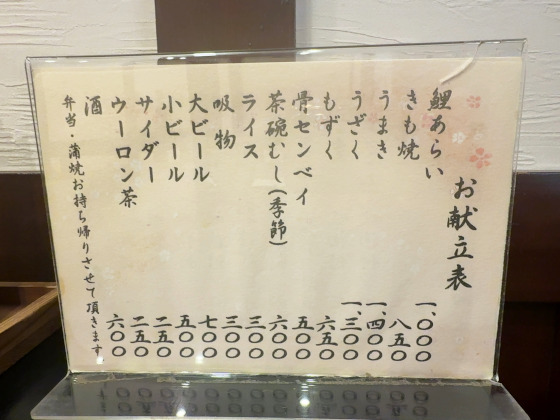 お献立表
鯉あらい 一、〇〇〇
きも焼 八五〇
うまき 一、四〇〇
うざく 一、三〇〇
もずく 六五〇
骨センベイ 五〇〇
茶碗むし(季節) 六〇〇
ライス 三〇〇
吸物 三〇〇
大ビール 七〇〇
小ビール 五〇〇
サイダー 二五〇
ウーロン茶 二五〇
酒 六〇〇
弁当・蒲焼お持ち帰りさせて頂きます